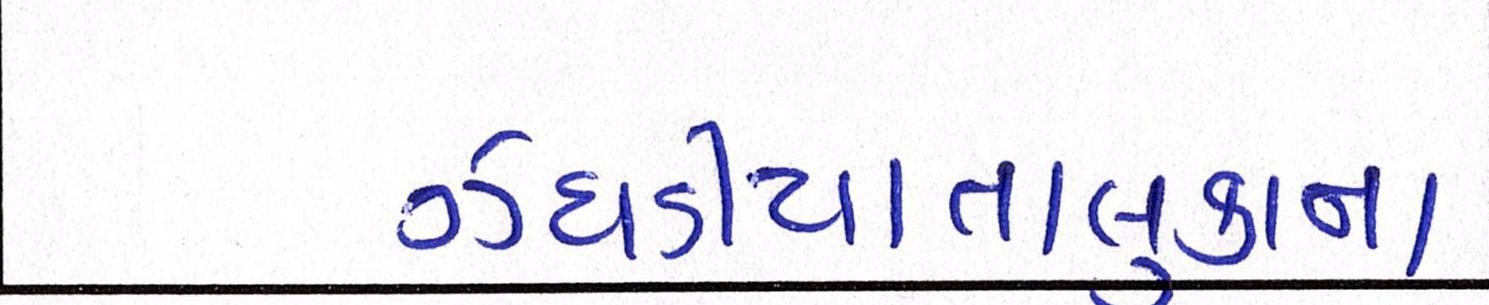 ઝઘડીયા તાલુકાના